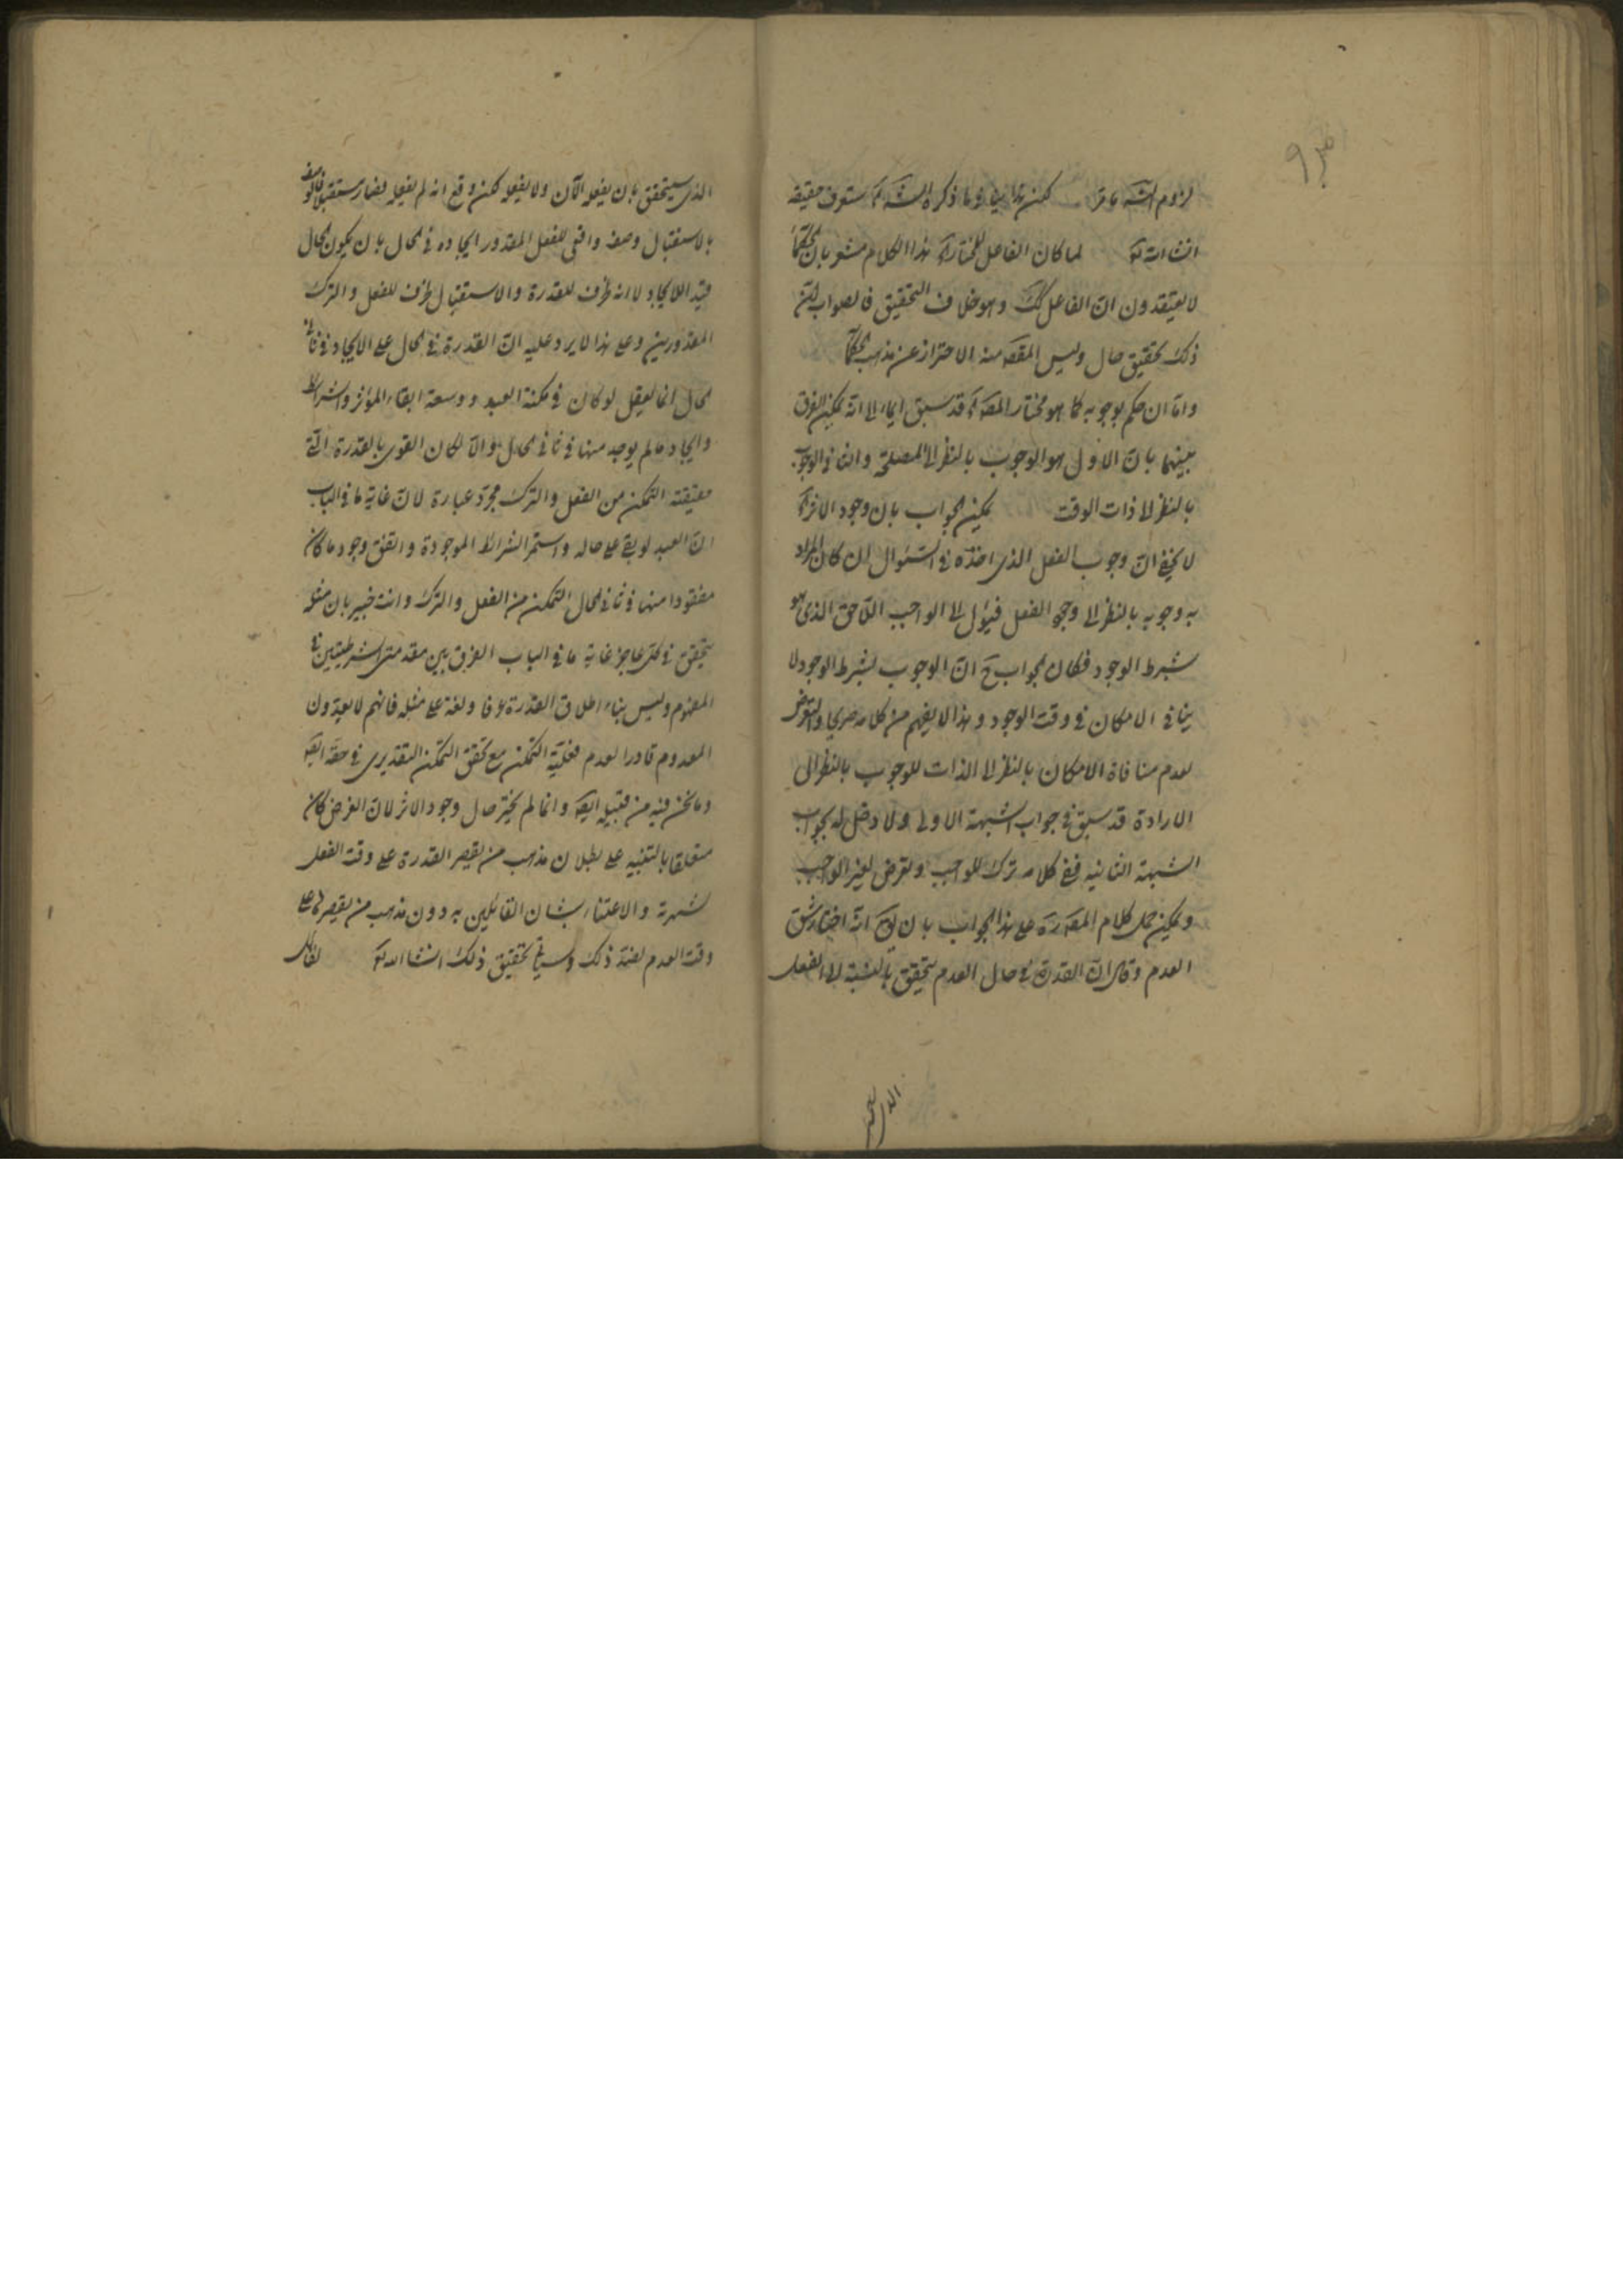 لزوم الشـ ما مر لكن هذا ينافي ما ذكره الشـ ستعرف حقيقة
انشاء الله تع لما كان الفاعل المختار آه هذا الكلام مشعر بان الحكماء
لا يعتقدون ان الفاعل كك وهو خلاف التحقيق فالصواب ان
ذلك تحقيق حال وليس المقصـ منه الاحتراز عن مذهب الحكماء
واما ان حكم بوجوبه كما هو مختار المصـ آه قد سبق ايماء الى انه يمكن الفرق
بينهما بان الاول هو الوجوب بالنظر الى المصلحة والثاني الوجوب
بالنظر الى ذات الوقت يمكن الجواب بان وجود الاثر آه
لا يخفى ان وجوب الفعل الذي اخذه في السئوال ان كان المراد
به وجوبه بالنظر الى وجود الفعل فيؤل الى الواجب اللاحق الذي هو
بشرط الوجود فكان الجواب ح ان الوجوب بشرط الوجود لا
ينافي الامكان في وقت الوجود وهذا لا يفهم من كلامه صريحا والتعرض
لعدم منافاة الامكان بالنظر الى الذات للوجوب بالنظر الى
الارادة قد سبق في جواب الشبهة الاولى ولا دخل له بجواب
الشبهة الثانية ففي كلامه ترك للواجب وتعرض لغير الواجب
ويمكن حمل كلام المصـ ره على هذا الجواب بان يق انه اختار شق
العدم وقال ان القدرة في حال العدم يتحقق بالنسبة الى الفعل
الذي سيتحقق
الذي سيتحقق بان يفعل الآن ولا يفعل لكن وقع انه لم يفعل فصار مستقبلا فالوصف
بالاستقبال وصف واقعي للفعل المقدور ايجاده في الحال بان يكون الحال
قيد الايجاد لا انه ظرف للقدرة والاستقبال ظرف للفعل والترك
المقدورين وعلى هذا لا يرد عليه ان القدرة في الحال على الايجاد في ثاني
الحال انما يعقل لو كان في مكنة العبد ووسعة ابقاء المؤثر والشرائط
وايجاد ما لم يوجد منها في ثاني الحال والا لكان القول بالقدرة التي
حقيقته التمكن من الفعل والترك مجرد عبارة لان غاية ما في الباب
ان العبد لو بقي على حاله واستمر الشرائط الموجودة واتفق وجود ما كان
مفقودا منها في ثاني الحال التمكن من الفعل والترك وانت خبير بان مثله
يتحقق في كل عاجز غاية ما في الباب الفرق بين مقدمتي الشرطيتين في
المفهوم وليس بناء اطلاق القدرة عرفا ولغة على مثله فانهم لا يعدون
المعدوم قادرا لعدم فعلية التمكن مع تحقق التمكن التقديري في حقه ايضـ
وما نحن فيه من قبيله ايضـ وانما لم يختر حال وجود الاثر لان الغرض كان
متعلقا بالتنبيه على بطلان مذهب من يقصر القدرة على وقت الفعل
لشهرته والاعتناء بشان القائلين به دون مذهب من يقصرها على
وقت العدم لفقد ذلك وسياتي تحقيق ذلك انشا الله تع لقائل